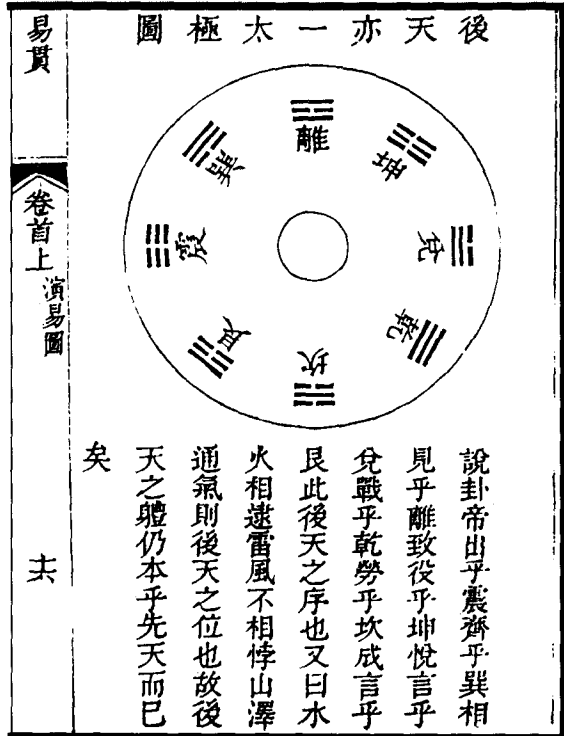 後天亦一太極圖
離
坤
兌
乾
坎
艮
震
巽
說卦帝出乎震齊乎巽相
見乎離致役乎坤悅言乎
兌戰乎乾勞乎坎成言乎
艮此後天之序也又曰水
火相逮雷風不相悖山澤
通氣則後天之位也故後
天之體仍本乎先天而已
矣
易貫
卷首上
演易圖
十六